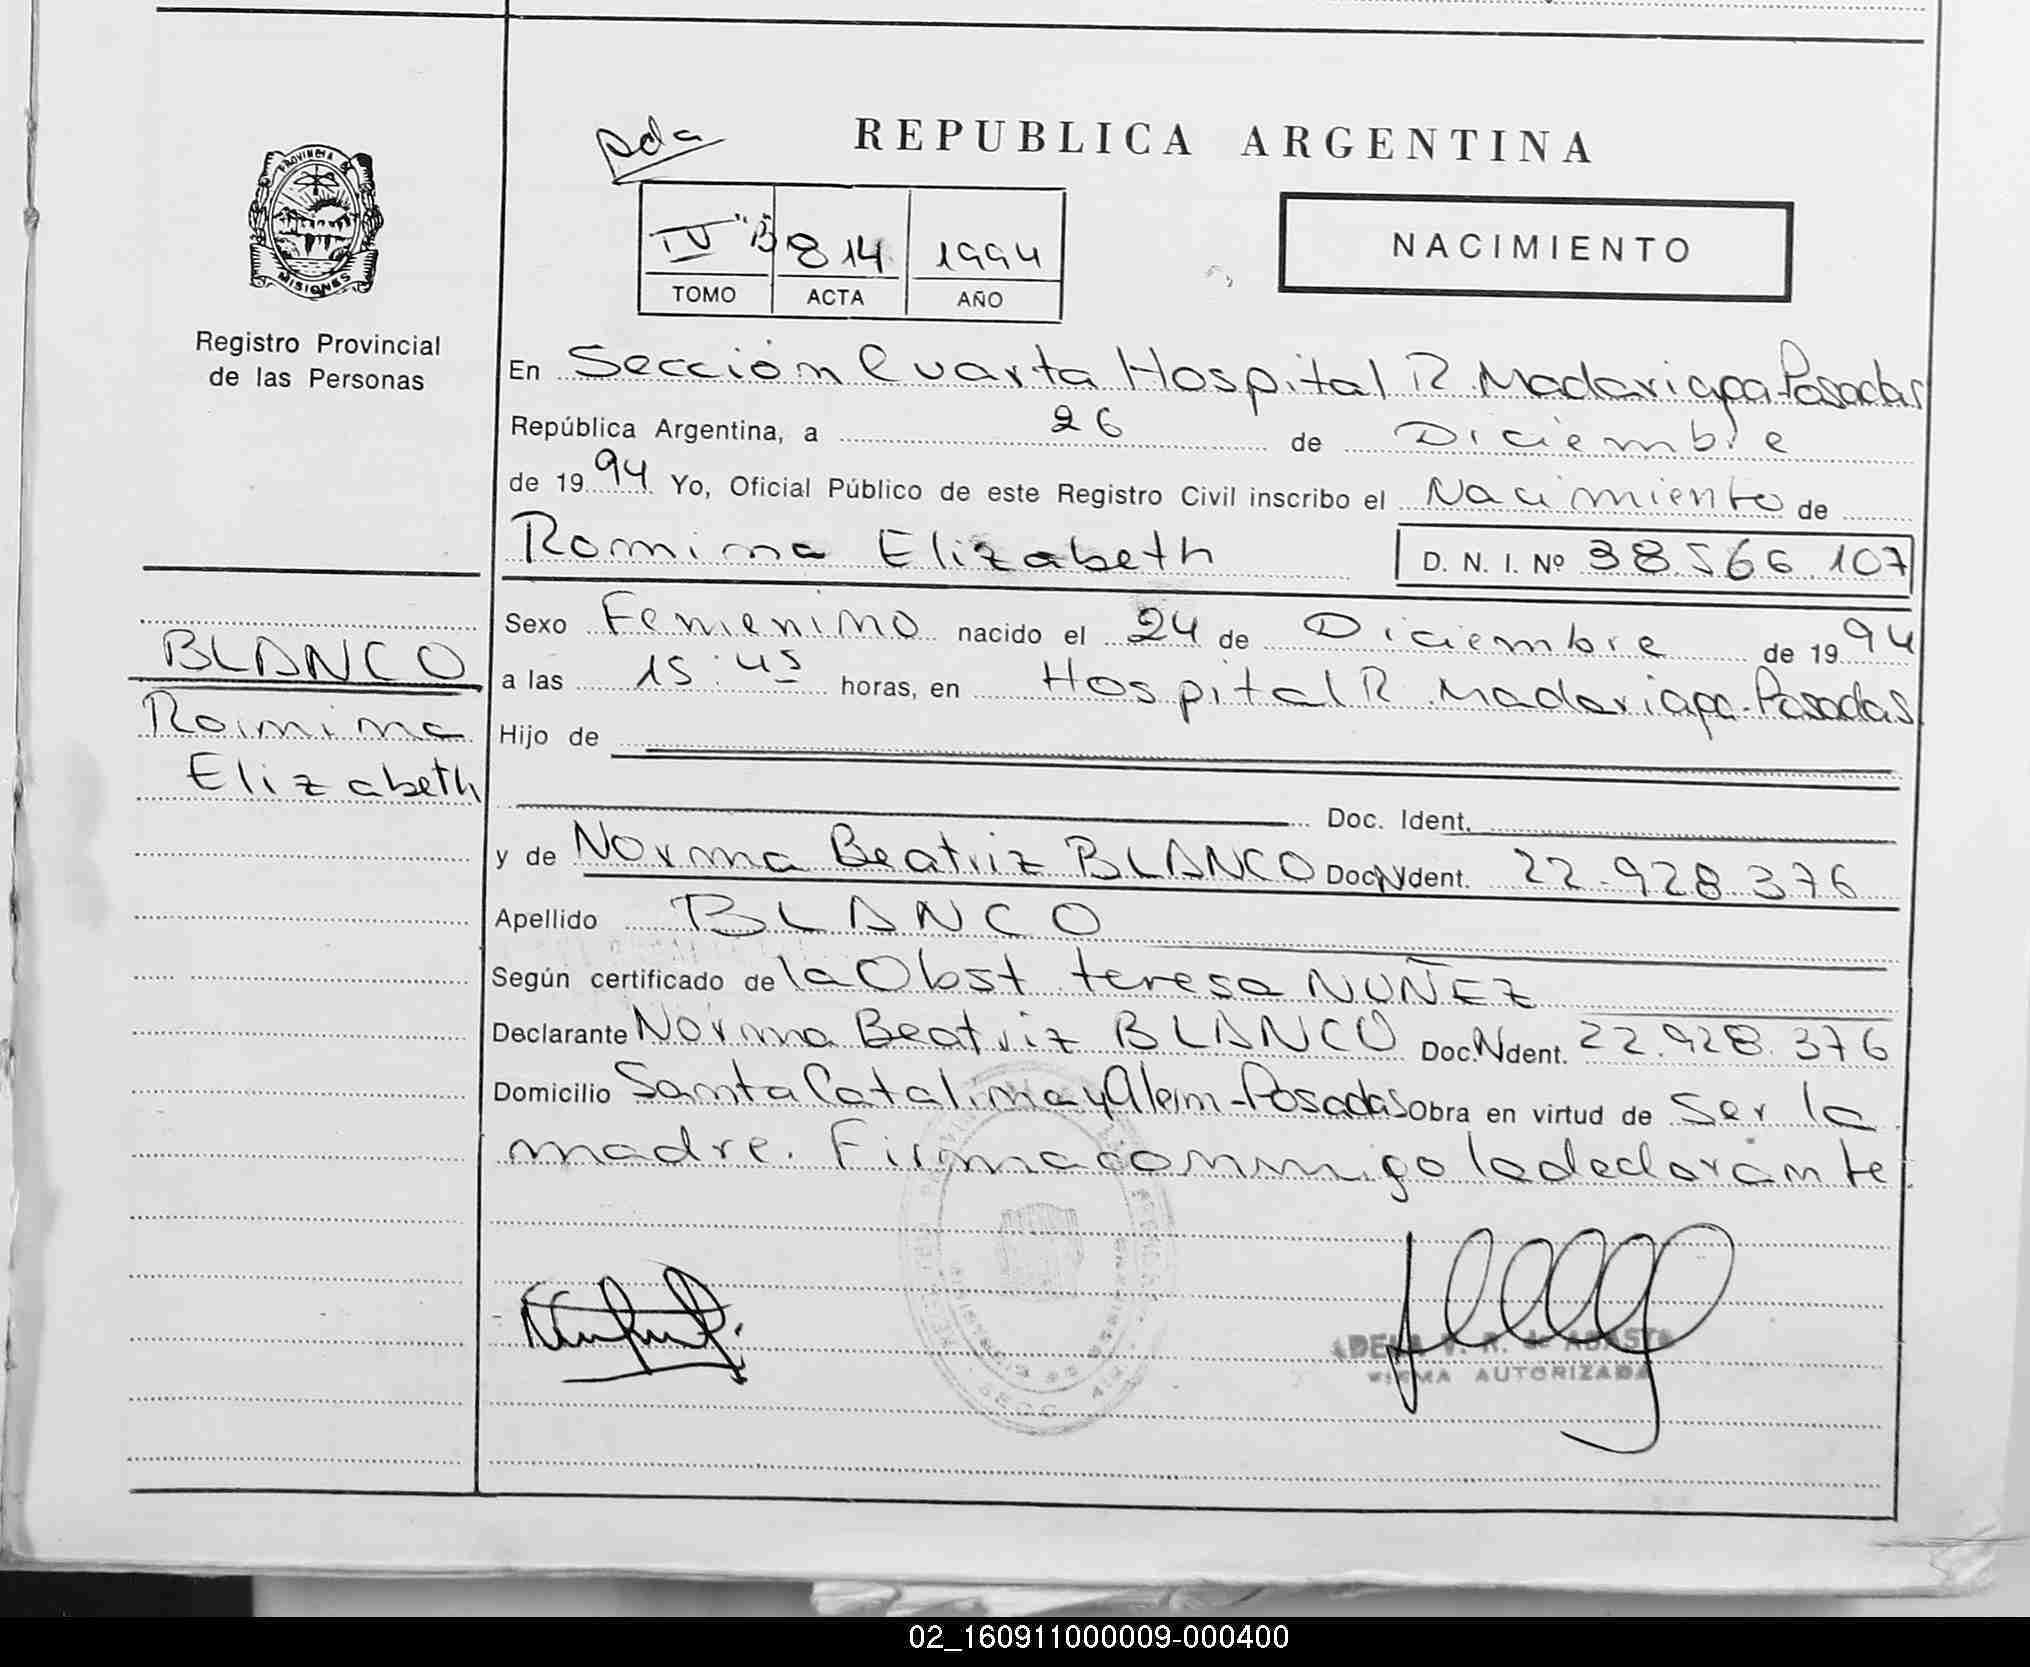 PROVINCIA DE
MISIONES
Registro Provincial
de las Personas
BLANCO
Romina
Elizabeth
REPUBLICA ARGENTINA
IV "B" 814 1994
TOMO ACTA AÑO
NACIMIENTO
En Sección Cuarta Hospital R. Madariaga-Posadas
República Argentina, a 26 de Diciembre
de 1994 Yo, Oficial Público de este Registro Civil inscribo el Nacimiento de
Romina Elizabeth D. N. I. Nº 38.566.107
Sexo Femenino nacido el 24 de Diciembre de 1994
a las 15:45 horas, en Hospital R. Madariaga-Posadas
Hijo de
Doc. Ident.
y de Norma Beatriz BLANCO Doc.Ndent. 22.928.376
Apellido BLANCO
Según certificado de la Obst teresa NUÑEZ
Declarante Norma Beatriz BLANCO Doc.Ndent. 22.928.376
Domicilio Santa Catalina y Alem-Posadas Obra en virtud de Ser la
madre. Firma conmigo la declarante
FIRMA AUTORIZADA
02_160911000009-000400